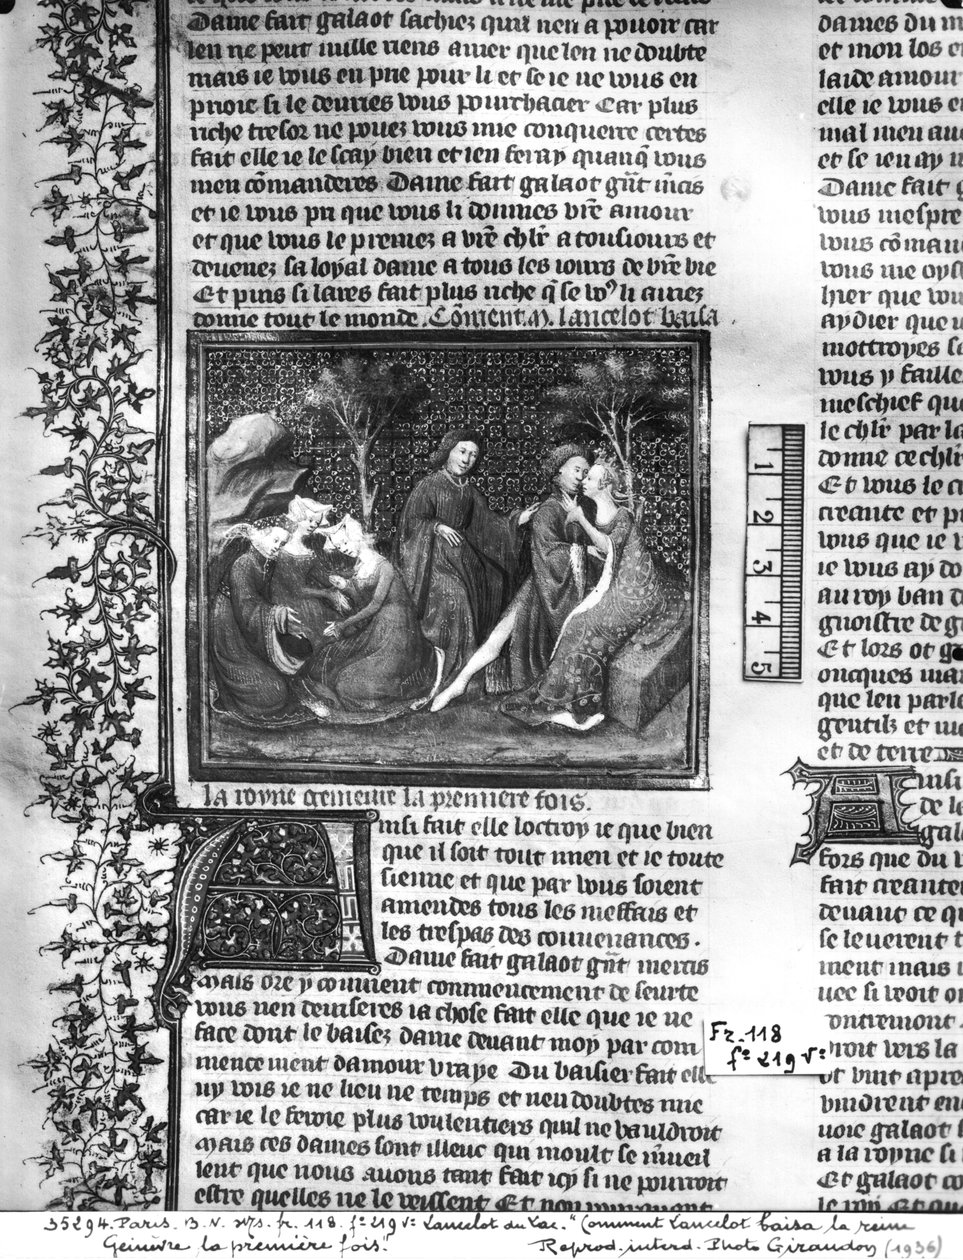 Dame fait galaot sachiez quil nen a pouoir car
len ne peut nulle riens amer que len ne doubte
mais ie vous en prie pour li et se ie ne vous en
prioie si le deuries vous pourchacier Car plus
riche tresor ne pouez vous mie conquerre certes
fait elle ie le scay bien et ien feray quanq̄ vous
men cōmanderes Dame fait galaot gñt m̄cis
et ie vous pri que vous li donnes vr̄e amour
et que vous le prenez a vr̄e chl̄r a tousiours et
deuenez sa loyal dame a tous les iours de vr̄e vie
Et puis si lares fait plus riche q̄ se vo9 li auiez
donne tout le monde. Cōment. M. lancelot baisa
la royne genieure la premiere fois.
Ainsi fait elle loctroy ie que bien
que il soit tout mien et ie toute
sienne et que par vous soient
amendes tous les meffais et
les trespas des conuenances.
Dame fait galaot gñt mercis
Mais ore y conuient commencement de seurte
vous nen deuiseres ia chose fait elle que ie ne
face dont le baisez dame deuant moy par com
mencement damour vraye Du baisier fait elle
ny vois ie ne lieu ne temps et nen doubtes mie
car ie le feroie plus voulentiers quil ne vauldroit
Mais ces dames sont illeuc qui moult se m̄ueil
lent que nous auons tant fait icy si ne pourroit
estre quelles ne le veissent Et non pourquant
dames du
et mon los
laide amour
elle ie vous
mal men
et se ien ay
Dame fait
vous mespre
vous cōman
vous me
hier que vou
aydier que
mottroyes
vous y faille
meschief que
le chl̄r par la
donne ce chl̄r
Et vous le
creante et
vous que ie
ie vous ay do
au roy ban
gnoistre de
Et lors ot
oncques
que len parle
gentilz et
et de terre
Ainsi
de
gal
fors que du
fait creante
deuant ce
se leuerent
ment mais
uec si
ontremont
vers la
vint apres
vindrent
voie galaot
a la royne si
Et galaot
1
2
3
4
5
Fr. 118
fº 219 vº
35294. Paris. B.N. Ms. fr. 118. fº 219 vº Lancelot du Lac. "Comment Lancelot baisa la reine
Genièvre la première fois." Reprod. interd. Photo Giraudon (1936)